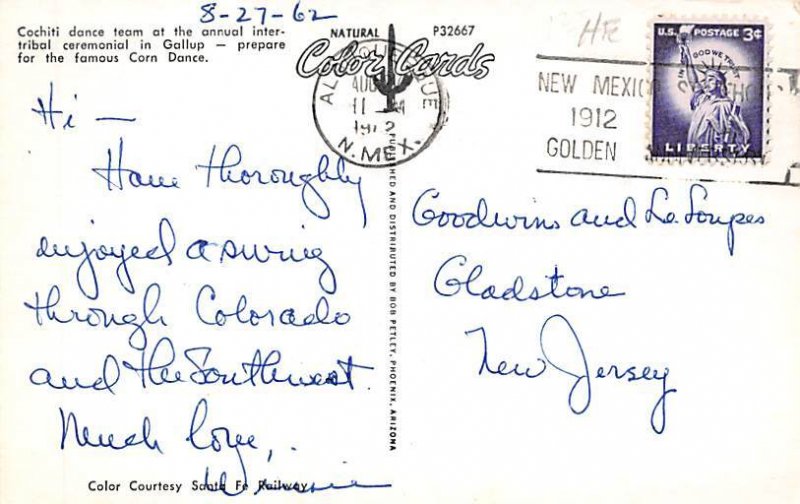 8-27-62
Cochiti dance team at the annual inter-
tribal ceremonial in Gallup — prepare
for the famous Corn Dance.
NATURAL
P32667
Color Cards
ALBUQUERQUE
AUG
11 AM
N. MEX.
HE
NEW MEXICO
1912
GOLDEN
U.S. POSTAGE 3¢
IN GOD WE TRUST
LIBERTY
Hi —
Have thoroughly
enjoyed a swing
through Colorado
and the Southwest.
Much love,
Winnie
Color Courtesy Santa Fe Railway
PUBLISHED AND DISTRIBUTED BY BOB PETLEY, PHOENIX, ARIZONA
Goodwins and La Soupes
Gladstone
New Jersey